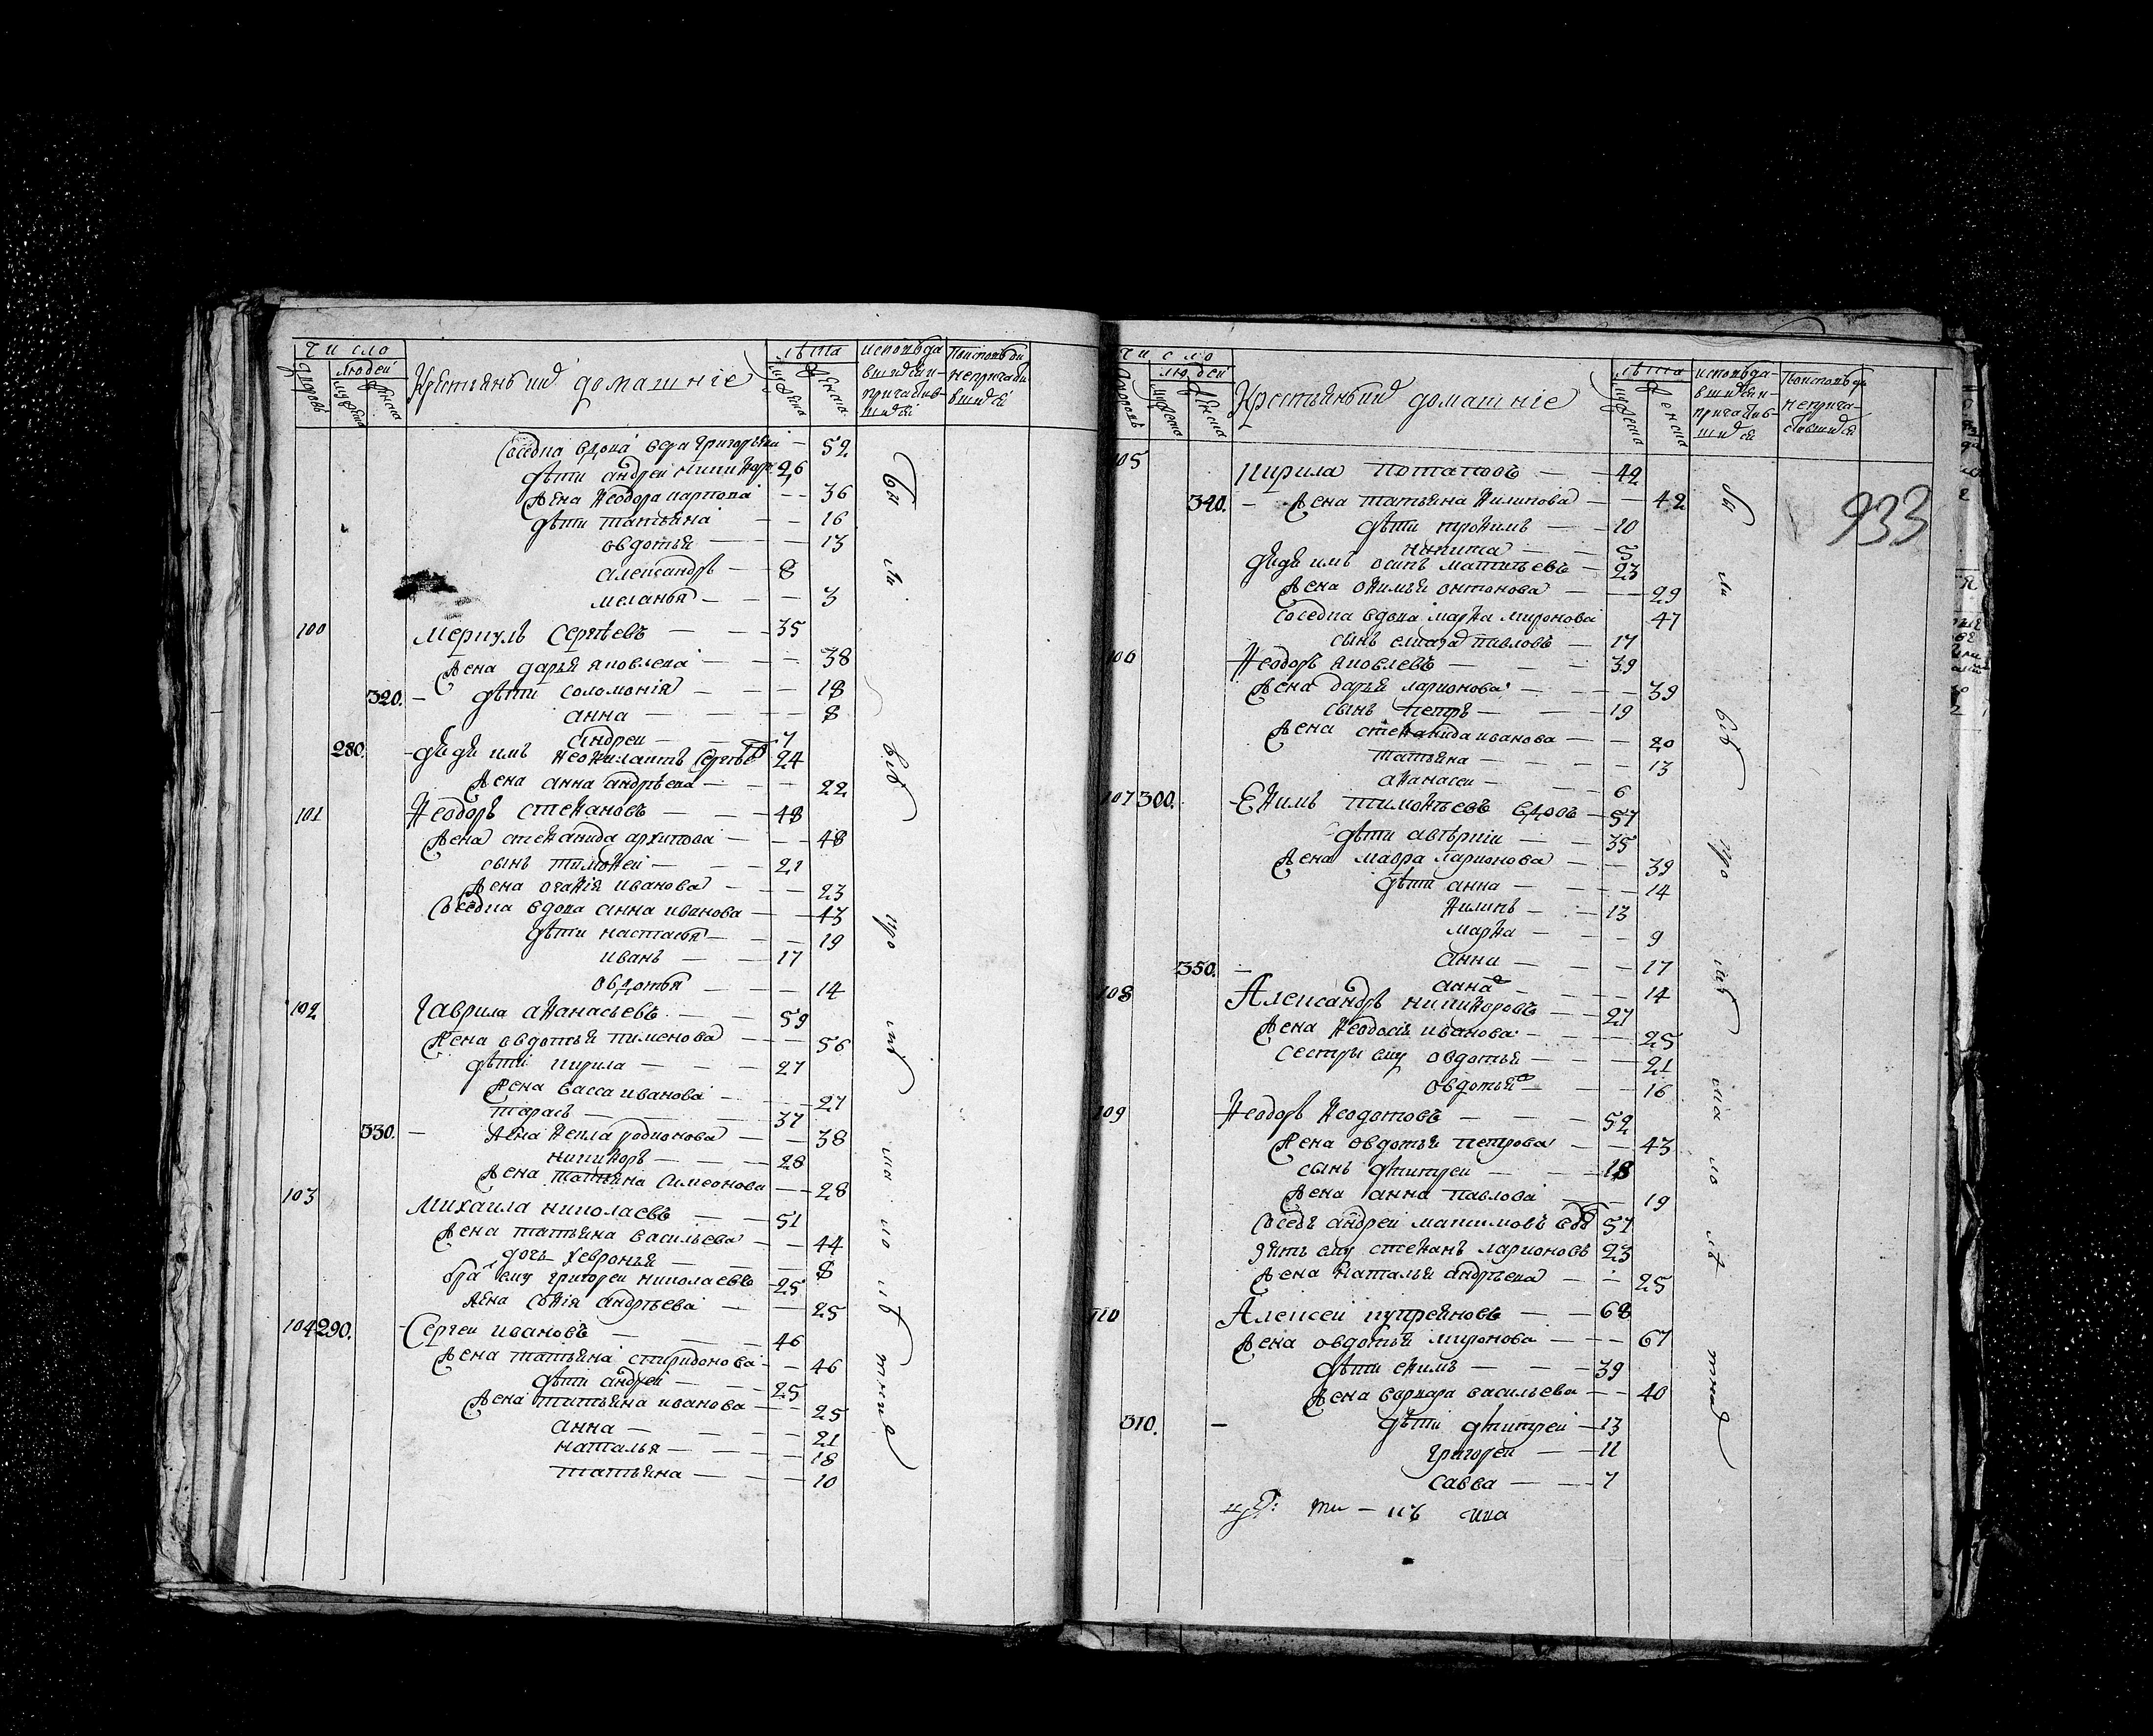 число
людей
дворовъ
мужеска
женска
Крестьяне и их домашніе
лѣта
мужеска
женска
исповѣда
вшихся и
причащив-
шихся
поисповѣди
непричасти
вшихся
соседка вдова вера григорьева — 52
дѣти андреи никифор 26
жена Ѳеодора карпова — 36
дѣти татьяна — 16
овдотья — 13
александръ — 8
меланья — 3
100 меркулъ Сергѣевъ — 35
жена дарья яковлева — 38
320. — дѣти соломонія — 18
анна — 8
андреи — 7
280. — дядя имъ Ѳеофилактъ Сергѣевъ 24
жена анна андрѣева — 22
101 Ѳеодоръ стеѳановъ — 48
жена стеѳанида архипова — 48
сынъ тимоѳеи — 21
жена огаѳія иванова — 23
соседка вдова анна иванова — 43
дѣти настасья — 19
иванъ — 17
овдотья — 14
102 Гаврила аѳанасьевъ — 59
жена овдотья пименова — 56
дѣти кирила — 27
жена васса иванова — 27
тарасъ — 37
330. — жена Ѳекла родионова — 38
никиѳоръ — 28
жена татьяна Симеонова — 28
103 Михаила николаевъ — 51
жена татьяна васильева — 44
дочь хевронья — 8
братъ ему григореи николаевъ 25
жена Соѳія андрѣева — 25
104 290. Сергеи ивановъ — 46
жена татьяна спиридонова — 46
дѣти андреи — 25
жена татьяна иванова — 25
анна — 21
наталья — 18
татьяна — 10
число
людеи
дворовъ
мужеска
женска
Крестьяне и их домашніе
лѣта
мужеска
женска
исповѣда-
вшихся и
причащив-
шихся
поисповѣди
неприча-
стившихся
933
105 Кирила потаповъ — 42
340. — жена татьяна Ѳилипова — 42
дѣти троѳимъ — 10
никита — 5
дядя имъ осипъ матвѣевъ — 23
жена оѳимья онтонова — 29
соседка вдова марѳа миронова 47
сынъ елизаръ павловъ — 17
106 Ѳеодоръ яковлевъ — 39
жена дарья ларионова — 39
сынъ петръ — 19
жена стеѳанида иванова — 20
татьяна — 13
аѳанасеи — 6
107 300. Еѳимъ тимоѳѣевъ вдовъ — 57
дѣти авѣркіи — 35
жена мавра ларионова — 39
дѣти анна — 14
Ѳилипъ — 13
марѳа — 9
350. — анна — 17
анна — 14
108 Александръ никиѳоровъ — 27
жена Ѳеодосія иванова — 25
сестры ему овдотья — 21
овдотья — 16
109 Ѳеодоръ Ѳеодотовъ — 52
жена овдотья петрова — 43
сынъ дмитреи — 18
жена анна павлова — 19
соседъ андреи максимовъ вдвъ 57
зять ему стеѳанъ ларионовъ 23
жена наталья андрѣева — 25
110 Алексеи купреяновъ — 68
жена овдотья миронова — 67
дѣти еѳимъ — 39
жена варвара васильева — 40
310. — дѣти дмитреи — 13
григореи — 11
савва — 7